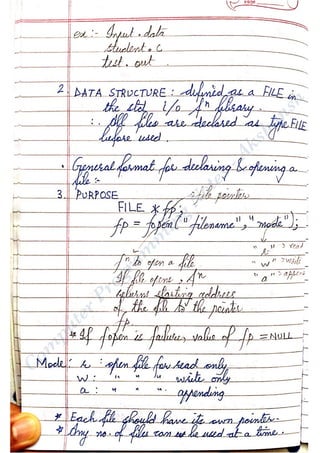 ex :- Input . data
student . c
test . out
2. DATA STRUCTURE : defined as a FILE in
the std i/o fn library.
∴ All files are declared as type FILE
before used.
• General format for declaring & opening a
file :-
3. PURPOSE : file pointer
FILE * fp ;
fp = fopen ("filename", "mode");
"r" : read
fn to open a file "w" : write
If file opens, fn "a" : append
returns starting address
of the file to the pointer
fp.
* If fopen is failure, value of fp = NULL
Mode : r : open file for read only
w : " " " write only
a : " " " appending
* Each file should have its own pointer.
* Any no. of files can be used at a time.